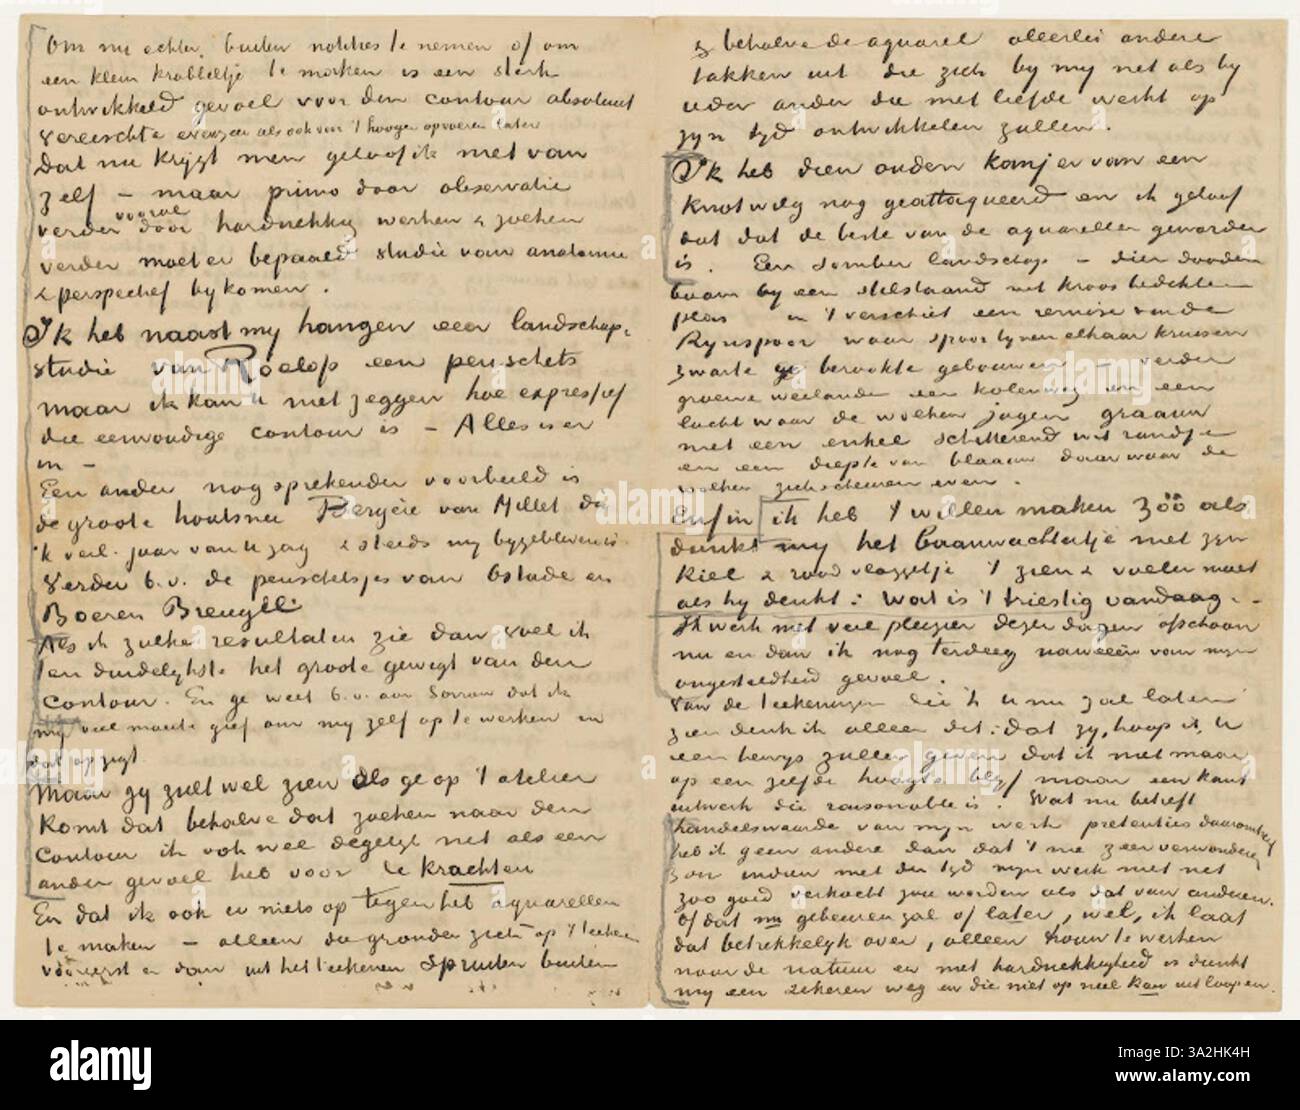 Om nu echter buiten notities te nemen of om
een klein krabbeltje te maken is een sterk
ontwikkeld gevoel voor den contour absoluut
vereischte evenzeer als ook voor 't hooger opvoeren later
Dat nu krijgt men geloof ik niet van
zelf – maar primo door observatie
verder vooral door hardnekkig werken & zoeken
verder moet er bepaald studie van anatomie
& perspectief bykomen.
Ik heb naast my hangen een landschap-
studie van Roelofs een penschets
maar ik kan U niet zeggen hoe expressief
die eenvoudige contour is – Alles is er
in –
Een ander nog sprekender voorbeeld is
de groote houtsnee Bergère van Millet die
'k verl. jaar van U zag & steeds my bygebleven is.
Verder b.v. de penschetsjes van Ostade en
Boeren Breughel.
Als ik zulke resultaten zie dan voel ik
ten duidelykste het groote gewigt van den
contour. En ge weet b.v. aan Sorrow dat ik
my veel moeite geef om my zelf op te werken in
dat opzigt.
Maar gy zult wel zien als ge op 't atelier
komt dat behalve dat zoeken naar den
contour ik ook wel degelyk net als een
ander gevoel heb voor de krachten
En dat ik ook er niets op tegen heb aquarellen
te maken – alleen die gronden zich op 't teekenen
vóóreerst en dan uit het teekenen spruiten buiten
& behalve de aquarel allerlei andere
takken uit die zich by my net als by
ieder ander die met liefde werkt op
zyn tyd ontwikkelen zullen.
Ik heb dien ouden kanjer van een
knotwilg nog geattaqueerd en ik geloof
dat dat de beste van de aquarellen geworden
is. Een somber landschap – dien dooden
boom by een stilstaand met kroos bedekten
plas in 't verschiet een remise van de
Rynspoor waar spoorlynen elkaar kruisen
zwart berookte gebouwen – verder
groene weilanden een kolenweg en een
lucht waar de wolken jagen graauw
met een enkel schitterend wit randje
en een diepte van blaauw daar waar de
wolken zich scheuren even.
Enfin ik heb 't willen maken zóó als
dunkt my het baanwachtertje met zyn
kiel & rood vlaggetje 't zien & voelen moet
als hy denkt: wat is 't triestig vandaag.
Ik werk met veel plezier dezer dagen ofschoon
nu en dan ik nog terdeeg naweeën van myn
ongesteldheid gevoel.
Van de teekeningen die ik U nu zal laten
zien denk ik alleen dit: dat zy, hoop ik, U
een bewys zullen geven dat ik niet maar
op een zelfde hoogte blyf maar een kant
uitwerk die raisonnable is. Wat nu betreft
handelswaarde van myn werk pretenties daaromtrent
heb ik geen andere dan dat 't me zeer verwonderen
zou indien met der tyd myn werk niet net
zoo goed verkocht zou worden als dat van anderen.
Of dat nu gebeuren zal of later, wel, ik laat
dat betrekkelyk over, alleen trouw te werken
naar de natuur en met hardnekkigheid is dunkt
my een zekeren weg en die niet op niet kan uitloopen.
alamy
Image ID: 3A2HK4H
www.alamy.com